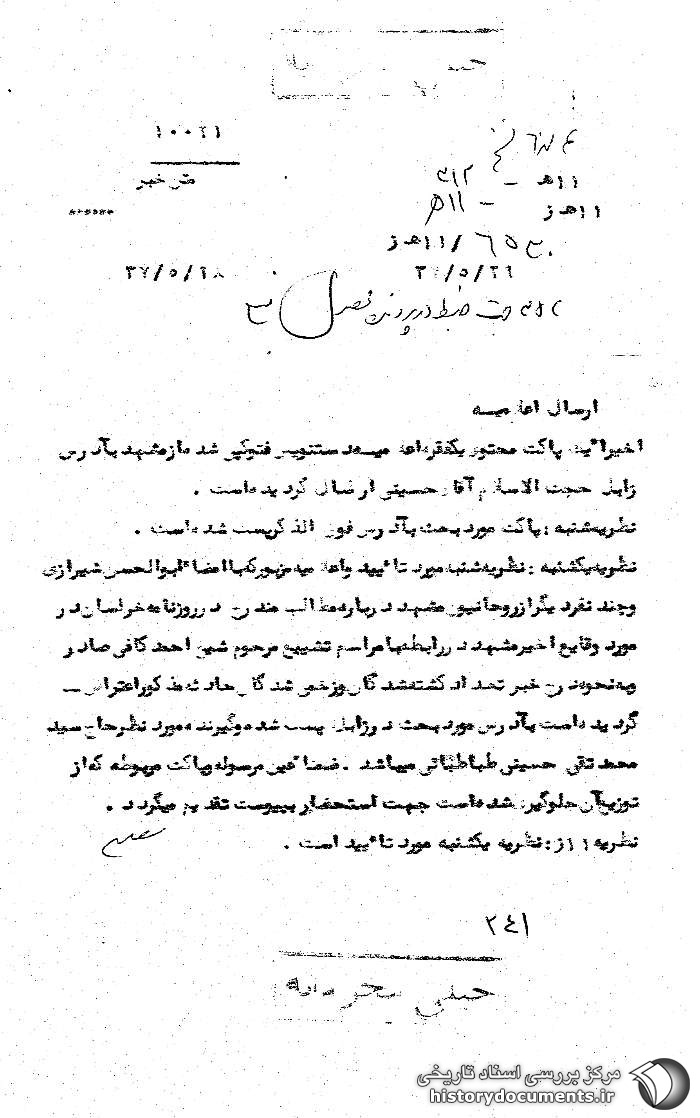 ۱۰۰۲۱
متن خبر
۱۱هـ - ۳۱۲
۱۱هـ ز - ۱۱هـ
۱۱هـ ز
۳۷/۵/۲۸
جهت ضبط در پرونده فیصل
ارسال اعلامیه
اخیرا یک پاکت محتوی یکفقره اعلامیه دستنویس فتوکپی شده از مشهد بآدرس
زابل حجت الاسلام آقای حسینی ارسال گردیده است .
نظریه شنبه : پاکت مورد بحث بآدرس فوق الذکر پست شده است .
نظریه یکشنبه : نظریه شنبه مورد تائید واعلامیه مزبور که با امضاء ابوالحسن شیرازی
و چند نفر دیگر از روحانیون مشهد درباره مطالب مندرج در روزنامه خراسان در
مورد وقایع اخیر مشهد در رابطه با مراسم تشییع مرحوم شیخ احمد کافی صادر و
به نحوه درج خبر تعداد کشته شدگان و زخمی شدگان حادثه مذکور اعتراض
گردیده است بآدرس مورد بحث در زابل پست شده و گیرنده مورد نظر حاج سید
محمد تقی حسینی طباطبائی میباشد . ضمنا عین مرسوله و پاکت مربوطه که از
توزیع آن جلوگیری شده است جهت استحضار بپیوست تقدیم میگردد .
نظریه ۱۱ز : نظریه یکشنبه مورد تائید است .
۲۴۱
خیلی محرمانه
مرکز بررسی اسناد تاریخی
historydocuments.ir